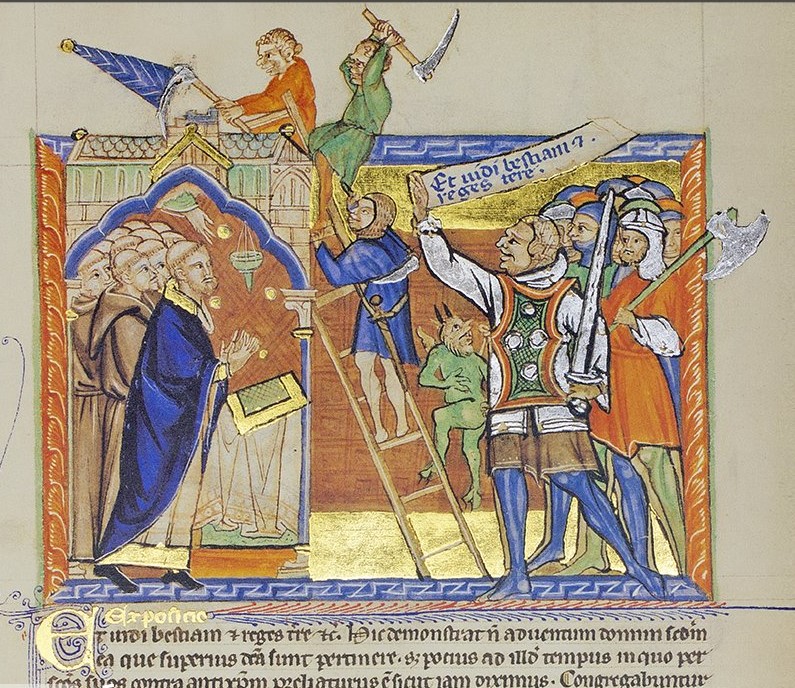 Et uidi bestiam ⁊.
reges terre.
Expositio
Et uidi bestiam ⁊ reges tre ⁊c. Hic demonstrat n̄ aduentum domini scd̄m
ea que superius dc̄a sunt pertinere. sꝫ pocius ad illd̄ tempus in quo per
sc̄os suos contra antixp̄m preliaturus ē sicut iam diximus. Congregabuntur